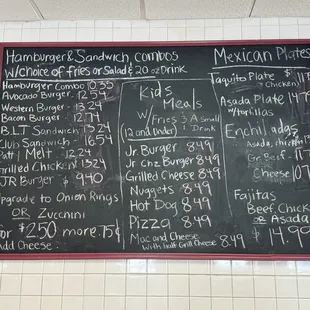 Hamburger & Sandwich combos
w/choice of fries or Salad & 20 oz Drink
Hamburger Combo 10.35
Avocado Burger 12.54
Western Burger 13.24
Bacon Burger 12.74
B.L.T Sandwich 13.24
Club Sandwich 16.54
Patti Melt 12.24
Grilled Chicken 13.24
JR Burger $9.40
Upgrade to Onion Rings
OR Zucchini
for $2.50 more
Add Cheese .75¢
Kids
Meals
w/Fries & A Small
(12 and Under) 1 Drink
Jr Burger 8.49
Jr Chz Burger 8.49
Grilled Cheese 8.49
Nuggets 8.49
Hot Dog 8.49
Pizza 8.49
Mac and Cheese
with half Grill Cheese 8.49
Mexican Plates
Taquito Plate $11
(Chicken)
Asada Plate 14.79
w/tortillas
Enchiladas
Asada, chicken
Gr. Beef 11
Cheese
Fajitas
Beef, Chicken
OR Asada
$14.99